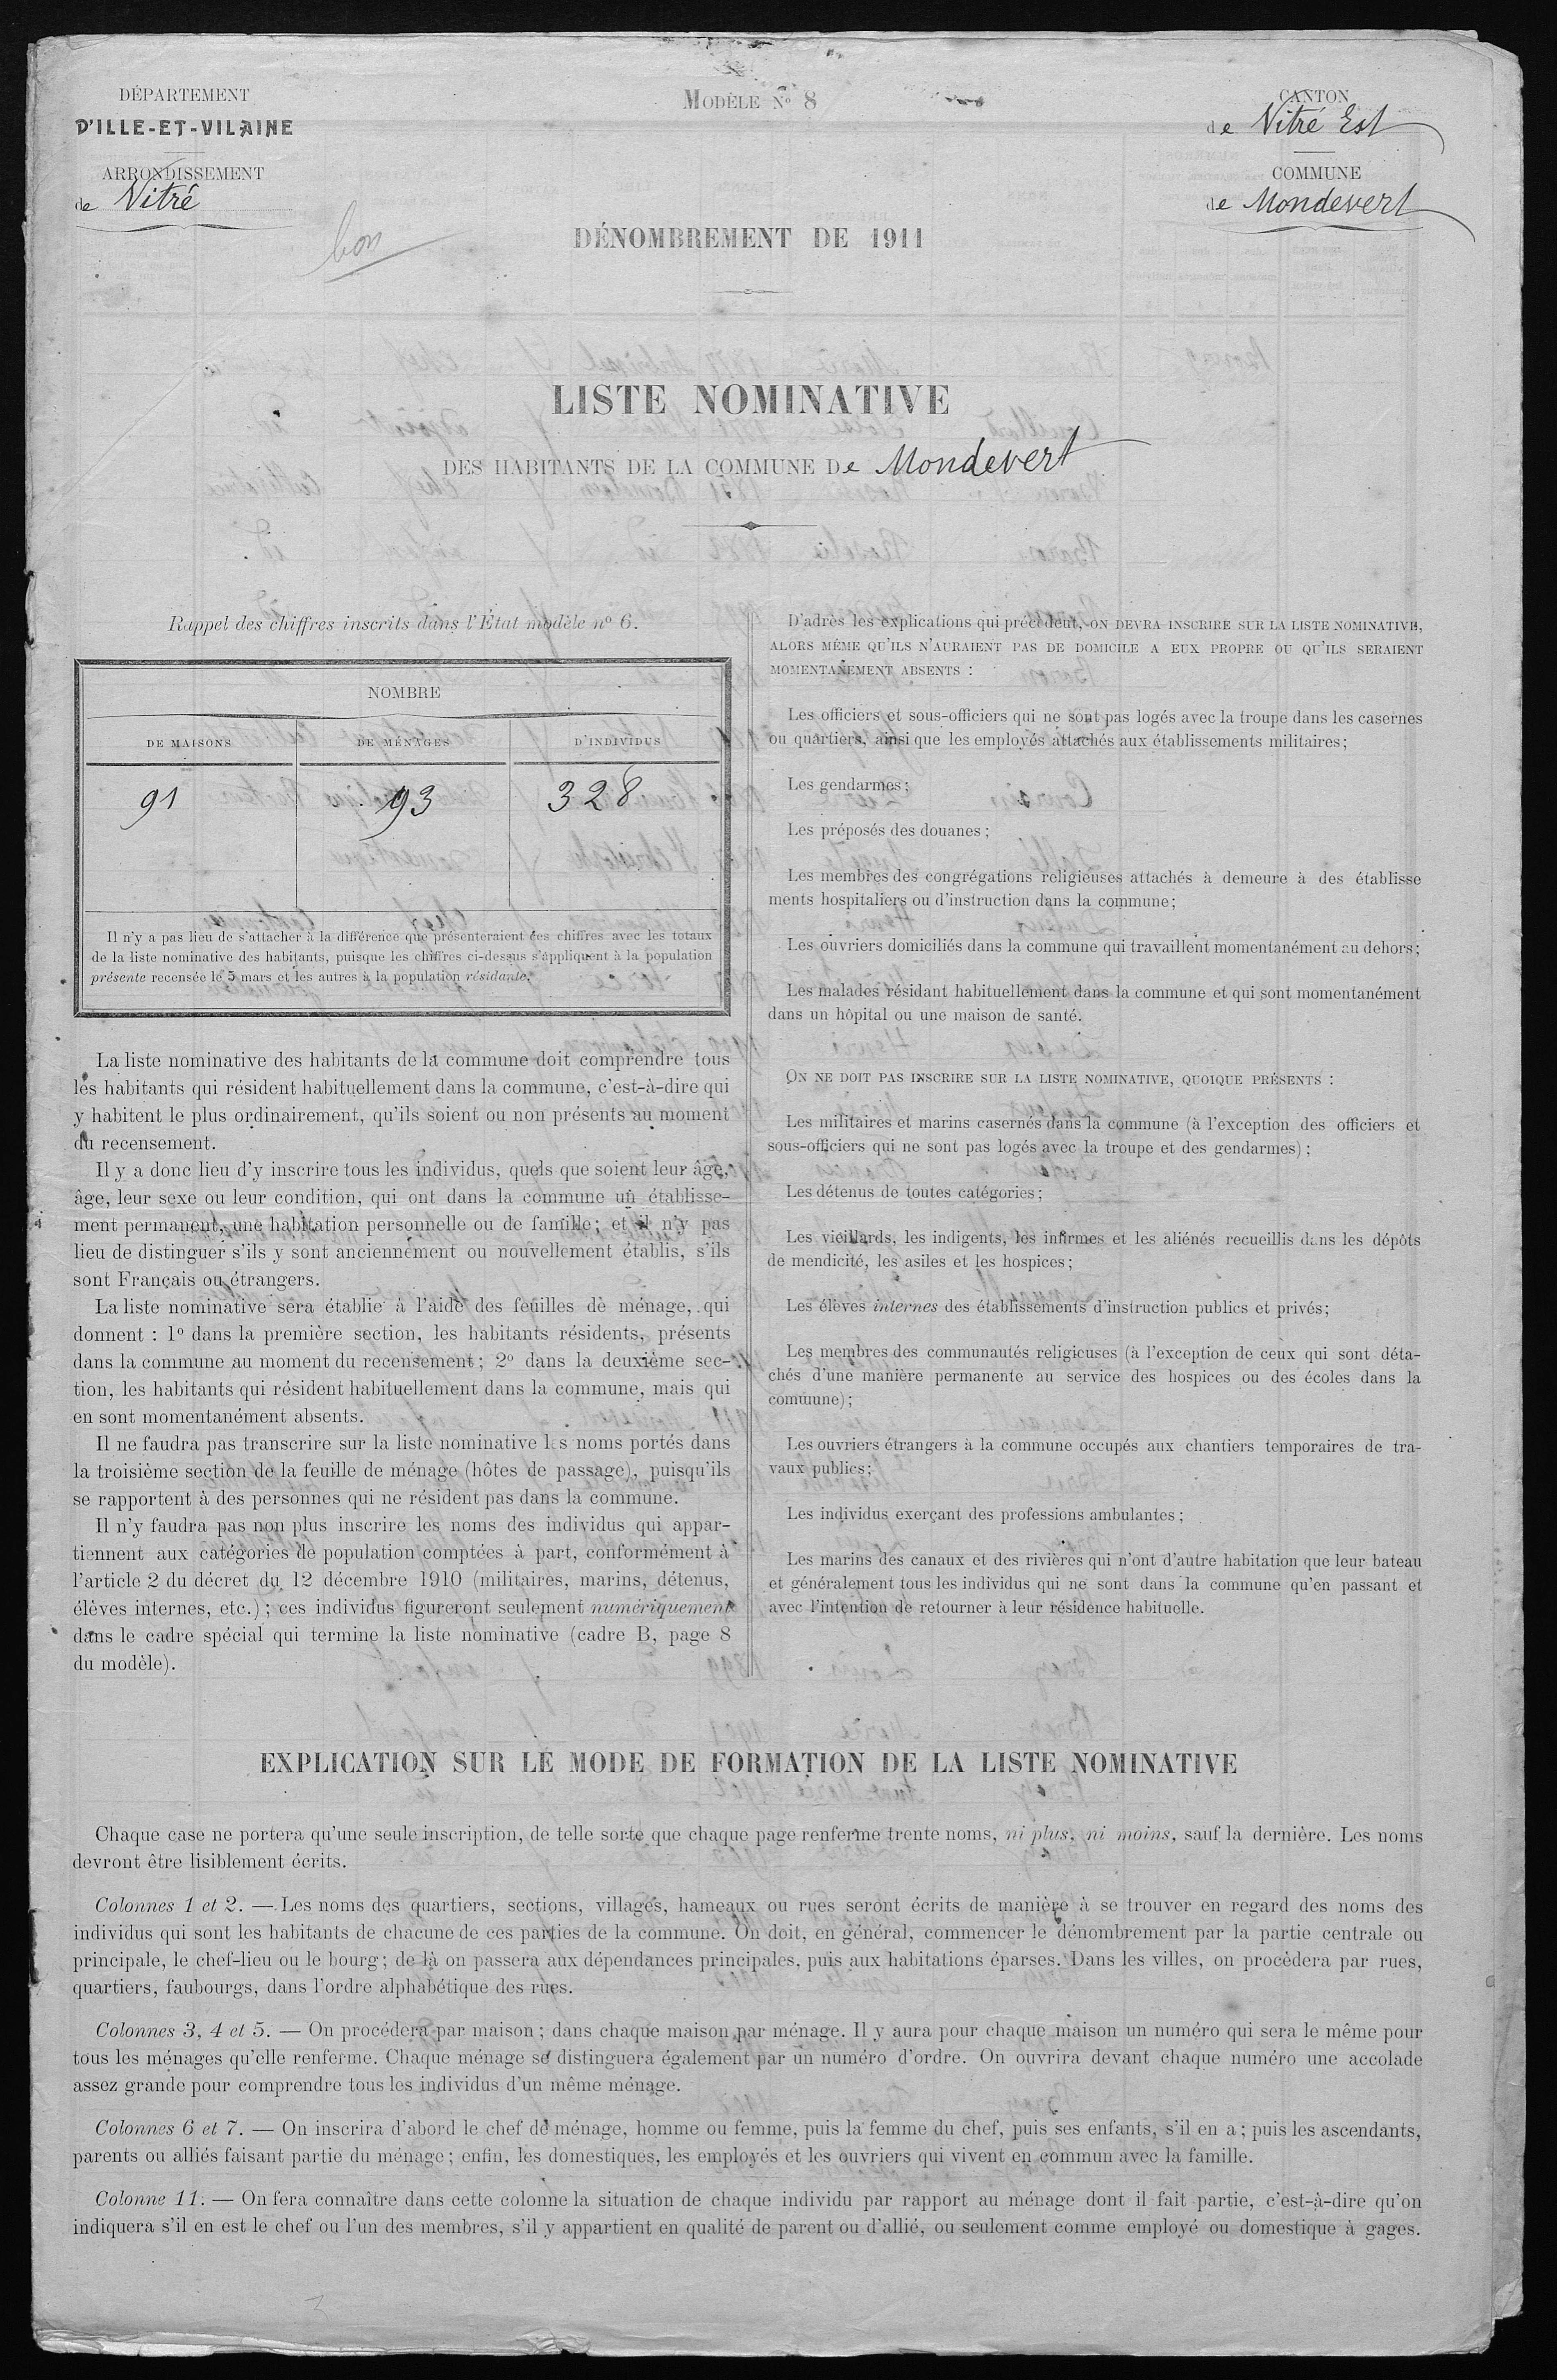 DÉPARTEMENT
D'ILLE-ET-VILAINE
ARRONDISSEMENT
de Vitré
bon
MODÈLE No 8
CANTON
de Vitré Est
COMMUNE
de Mondevert
DÉNOMBREMENT DE 1911
LISTE NOMINATIVE
DES HABITANTS DE LA COMMUNE De Mondevert
Rappel des chiffres inscrits dans l'État modèle no 6.
NOMBRE
DE MAISONS DE MÉNAGES D'INDIVIDUS
91 93 328
Il n'y a pas lieu de s'attacher à la différence que présenteraient ces chiffres avec les totaux
de la liste nominative des habitants, puisque les chiffres ci-dessus s'appliquent à la population
présente recensée le 5 mars et les autres à la population résidante.
La liste nominative des habitants de la commune doit comprendre tous
les habitants qui résident habituellement dans la commune, c'est-à-dire qui
y habitent le plus ordinairement, qu'ils soient ou non présents au moment
du recensement.
Il y a donc lieu d'y inscrire tous les individus, quels que soient leur âge,
âge, leur sexe ou leur condition, qui ont dans la commune un établisse-
ment permanent, une habitation personnelle ou de famille; et il n'y pas
lieu de distinguer s'ils y sont anciennement ou nouvellement établis, s'ils
sont Français ou étrangers.
La liste nominative sera établie à l'aide des feuilles de ménage, qui
donnent : 1o dans la première section, les habitants résidents, présents
dans la commune au moment du recensement; 2o dans la deuxième sec-
tion, les habitants qui résident habituellement dans la commune, mais qui
en sont momentanément absents.
Il ne faudra pas transcrire sur la liste nominative les noms portés dans
la troisième section de la feuille de ménage (hôtes de passage), puisqu'ils
se rapportent à des personnes qui ne résident pas dans la commune.
Il n'y faudra pas non plus inscrire les noms des individus qui appar-
tiennent aux catégories de population comptées à part, conformément à
l'article 2 du décret du 12 décembre 1910 (militaires, marins, détenus,
élèves internes, etc.); ces individus figureront seulement numériquement
dans le cadre spécial qui termine la liste nominative (cadre B, page 8
du modèle).
D'adrès les explications qui précèdent, ON DEVRA INSCRIRE SUR LA LISTE NOMINATIVE,
ALORS MÊME QU'ILS N'AURAIENT PAS DE DOMICILE A EUX PROPRE OU QU'ILS SERAIENT
MOMENTANEMENT ABSENTS :
Les officiers et sous-officiers qui ne sont pas logés avec la troupe dans les casernes
ou quartiers, ainsi que les employés attachés aux établissements militaires;
Les gendarmes;
Les préposés des douanes;
Les membres des congrégations religieuses attachés à demeure à des établisse
ments hospitaliers ou d'instruction dans la commune;
Les ouvriers domiciliés dans la commune qui travaillent momentanément au dehors;
Les malades résidant habituellement dans la commune et qui sont momentanément
dans un hôpital ou une maison de santé.
ON NE DOIT PAS INSCRIRE SUR LA LISTE NOMINATIVE, QUOIQUE PRÉSENTS :
Les militaires et marins casernés dans la commune (à l'exception des officiers et
sous-officiers qui ne sont pas logés avec la troupe et des gendarmes);
Les détenus de toutes catégories;
Les vieillards, les indigents, les infirmes et les aliénés recueillis dans les dépôts
de mendicité, les asiles et les hospices;
Les élèves internes des établissements d'instruction publics et privés;
Les membres des communautés religieuses (à l'exception de ceux qui sont déta-
chés d'une manière permanente au service des hospices ou des écoles dans la
commune);
Les ouvriers étrangers à la commune occupés aux chantiers temporaires de tra-
vaux publics;
Les individus exerçant des professions ambulantes;
Les marins des canaux et des rivières qui n'ont d'autre habitation que leur bateau
et généralement tous les individus qui ne sont dans la commune qu'en passant et
avec l'intention de retourner à leur résidence habituelle.
EXPLICATION SUR LE MODE DE FORMATION DE LA LISTE NOMINATIVE
Chaque case ne portera qu'une seule inscription, de telle sorte que chaque page renferme trente noms, ni plus, ni moins, sauf la dernière. Les noms
devront être lisiblement écrits.
Colonnes 1 et 2. — Les noms des quartiers, sections, villages, hameaux ou rues seront écrits de manière à se trouver en regard des noms des
individus qui sont les habitants de chacune de ces parties de la commune. On doit, en général, commencer le dénombrement par la partie centrale ou
principale, le chef-lieu ou le bourg; de là on passera aux dépendances principales, puis aux habitations éparses. Dans les villes, on procèdera par rues,
quartiers, faubourgs, dans l'ordre alphabétique des rues.
Colonnes 3, 4 et 5. — On procédera par maison; dans chaque maison par ménage. Il y aura pour chaque maison un numéro qui sera le même pour
tous les ménages qu'elle renferme. Chaque ménage se distinguera également par un numéro d'ordre. On ouvrira devant chaque numéro une accolade
assez grande pour comprendre tous les individus d'un même ménage.
Colonnes 6 et 7. — On inscrira d'abord le chef de ménage, homme ou femme, puis la femme du chef, puis ses enfants, s'il en a; puis les ascendants,
parents ou alliés faisant partie du ménage; enfin, les domestiques, les employés et les ouvriers qui vivent en commun avec la famille.
Colonne 11. — On fera connaître dans cette colonne la situation de chaque individu par rapport au ménage dont il fait partie, c'est-à-dire qu'on
indiquera s'il en est le chef ou l'un des membres, s'il y appartient en qualité de parent ou d'allié, ou seulement comme employé ou domestique à gages.